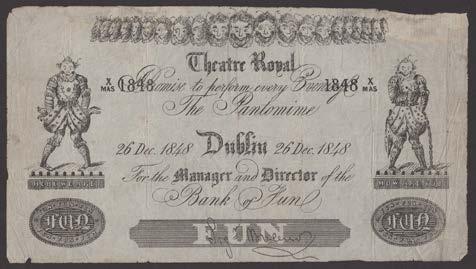 Theatre Royal
X MAS 1848 Promise to perform every Evening 1848 X MAS
The Pantomine
26 Dec. 1848 Dublin 26 Dec. 1848
For the Manager and Director of the
Bank of Fun
FUN FUN
FUN